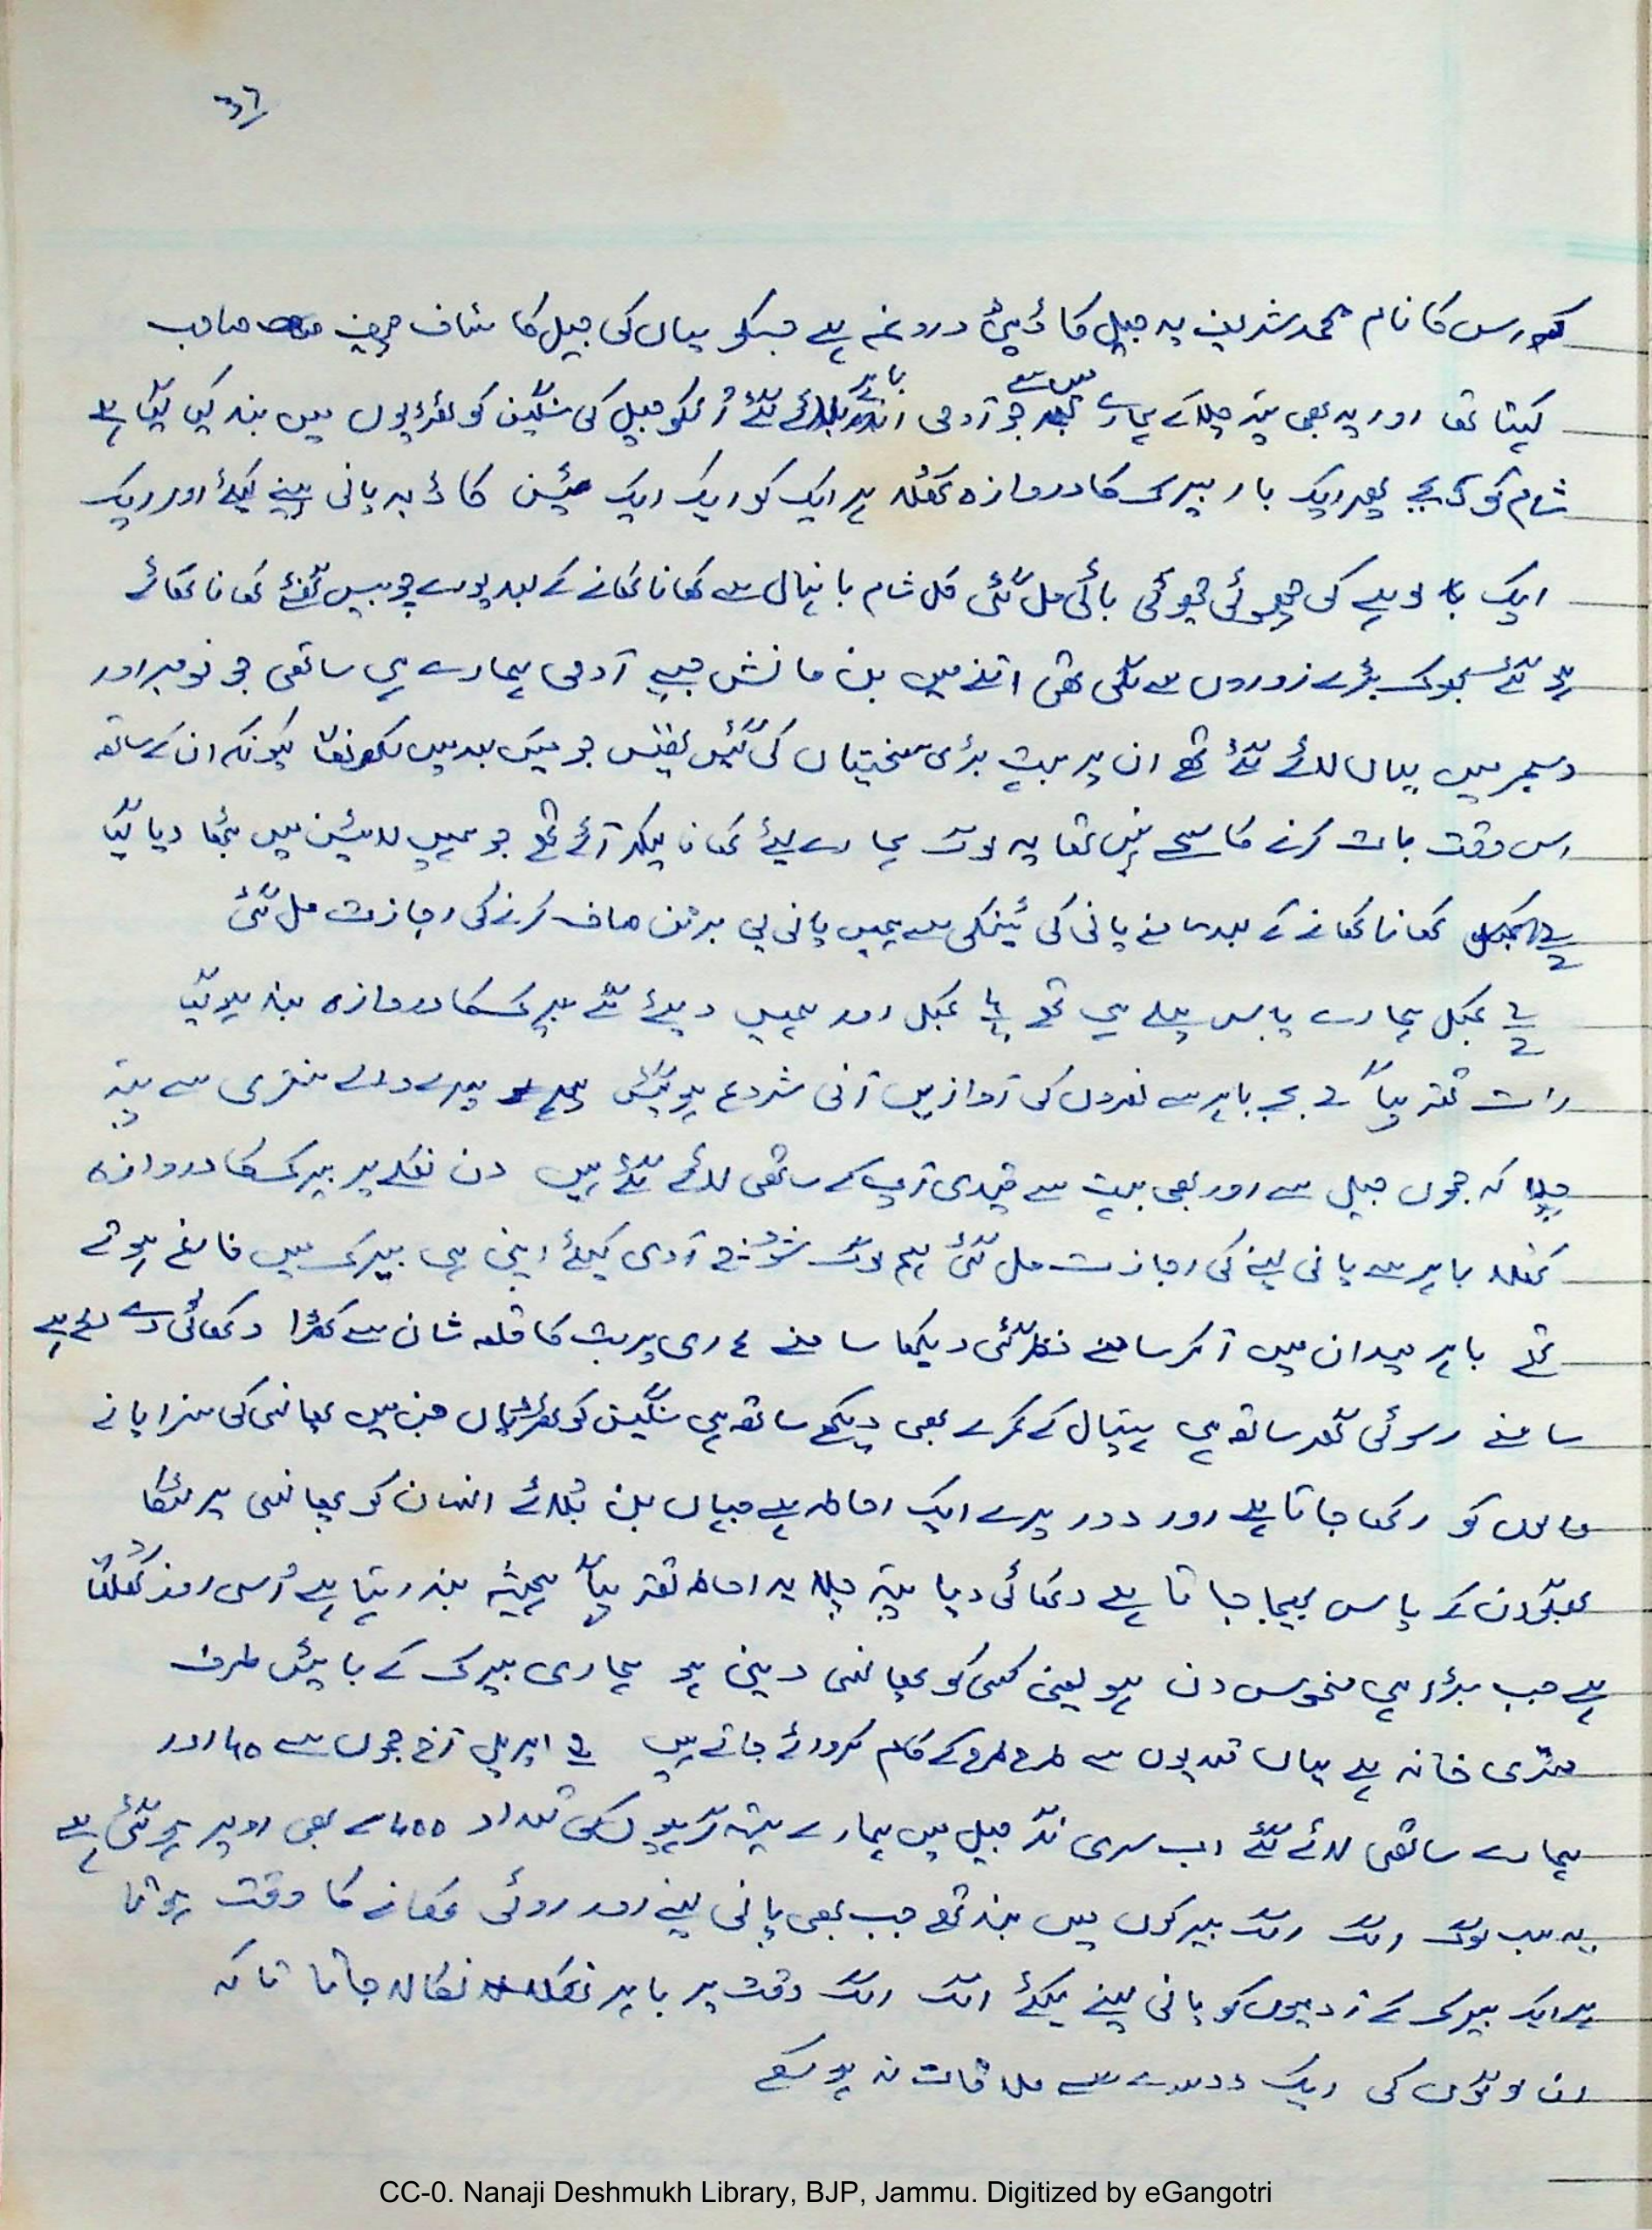 37
اس کا نام محمد شریف یہ جیل کا ڈپٹی دروغہ ہے جسکو یہاں کی جیل کا سٹاف چیف صاحب
کہتا تھا اور یہ بھی پتہ چلا کے ہمارے میں سے جو آدمی باہر بلائے گئے اُنکو جیل کی سنگین کوٹھڑیوں میں بند کیا گیا ہے
شام کو بجے پھر ایک بار بیرک کا دروازہ کھلا ہر ایک کو ایک ایک ٹین کا ڈبہ پانی پینے کیلئے اور ایک
ایک لوہے کی چھوٹی چھوٹی باٹی مل گئی کل شام بانہال سے کھانا کھانے کے بعد پورے چوبیس گھنٹے کھانا کھائے
ہو گئے بھوک بڑے زوروں سے لگی تھی اتنے میں بن مانش جیسے آدمی ہمارے ہی ساتھی جو نومبر اور
دسمبر میں یہاں لائے گئے تھے ان پر بہت بڑی سختیاں کی گئیں تھیں جو میں بعد میں لکھونگا کیونکہ ان کے ساتھ
اس وقت بات کرنے کا سمے نہیں تھا یہ لوگ ہمارے لیئے کھانا لیکر آئے تھے جو ہمیں لائین میں بٹھا دیا گیا
کھانا کھانے کے بعد سامنے پانی کی ٹینکی سے ہمیں پانی پی برتن صاف کرنے کی اجازت مل گئی
2 کمبل ہمارے پاس پہلے ہی تھے کمبل اور ہمیں دیئے گئے بیرک کا دروازہ بند ہو گیا
رات تقریباً بجے باہر سے نعروں کی آوازیں آنی شروع ہو گئیں پہرے والے سنتری سے پتہ
چلا کہ جموں جیل سے اور بھی بہت سے قیدی آپ کے ساتھی لائے گئے ہیں دن نکلے پر بیرک کا دروازہ
کھلا باہر سے پانی لینے کی اجازت مل گئی ہم لوگ آدی کیلئے اپنی ہی بیرک میں فارغ ہوتے
تھے باہر میدان میں آکر سامنے نظر گئی دیکھا سامنے ہاری پربت کا قلعہ شان سے کھڑا دکھائی دے رہا ہے
سامنے رسوئی گھر ساتھ ہی ہسپتال کے کمرے بھی دیکھے ساتھ ہی سنگین کوٹھڑیاں جن میں پھانسی کی سزا پانے
والوں کو رکھا جاتا ہے اور دور پرے ایک احاطہ ہے جہاں بن بُلائے انسان کو پھانسی پر لٹکا
بھگوان کے پاس بھیجا جاتا ہے دکھائی دیا پتہ چلا یہ احاطہ تقریباً ہمیشہ بند رہتا ہے اُسی روز کُھلتا
ہے جب بڑا ہی منحوس دن ہو یعنی کسی کو پھانسی دینی ہو ہماری بیرک کے بائیں طرف
مشقتی خانہ ہے یہاں قیدیوں سے طرح طرح کے کام کروائے جاتے ہیں اپریل آج جموں سے 45 اور
ہمارے ساتھی لائے گئے اب سری نگر جیل میں ہمارے ستیہ گرہیوں کی تعداد 400 سے بھی اوپر ہو گئی ہے
یہ سب لوگ الگ الگ بیرکوں میں بند تھے جب بھی پانی لینے اور روٹی کھانے کا وقت ہوتا
ہر ایک بیرک کے آدمیوں کو پانی لینے کیلئے الگ الگ وقت پر باہر نکالا جاتا تا کہ
ان لوگوں کی ایک دوسرے سے ملاقات نہ ہو سکے
CC-0. Nanaji Deshmukh Library, BJP, Jammu. Digitized by eGangotri